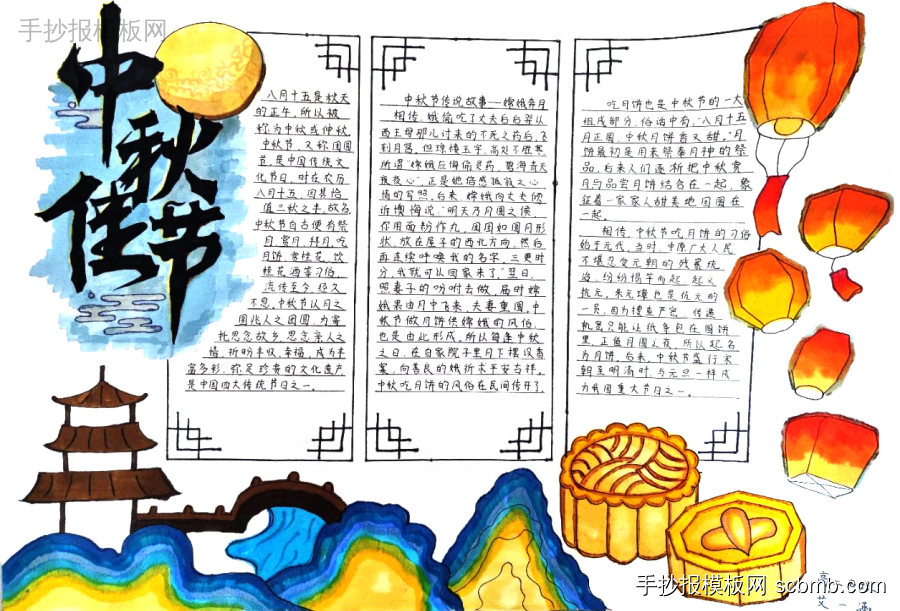 手抄报模板网
中秋佳节
八月十五是秋天
的正中，所以被
称为中秋或仲秋。
中秋节，又称团圆
节，是中国传统文
化节日，时在农历
八月十五，因其恰
值三秋之半，故名
中秋节自古便有祭
月、赏月、拜月、吃
月饼、赏桂花、饮
桂花酒等习俗，
流传至今，经久
不息。中秋节以月之
圆兆人之团圆，为寄
托思念故乡，思念亲人之
情，祈盼丰收、幸福，成为丰
富多彩、弥足珍贵的文化遗产
是中国四大传统节日之一。
中秋节传说故事—嫦娥奔月
相传，嫦娥偷吃了丈夫后羿从
西王母那儿讨来的不死之药后，飞
到月宫。但琼楼玉宇，高处不胜寒
所谓“嫦娥应悔偷灵药，碧海青天
夜夜心”，正是她倍感孤寂之心
情的写照。后来，嫦娥向丈夫倾
诉懊悔说：“明天乃月圆之候，
你用面粉作丸，团团如圆月形
状，放在屋子的西北方向，然后
再连续呼唤我的名字。三更时
分，我就可以回家来了”翌日，
照妻子的吩咐去做，届时嫦
娥果由月中飞来，夫妻重圆，中
秋节做月饼供嫦娥的风俗，
也是由此形成。所以每逢中秋
之日，在自家院子里月下摆设香
案，向善良的娥祈求平安吉祥。
中秋吃月饼的风俗在民间传开了
吃月饼也是中秋节的一大
组成部分，俗话中有：“八月十五
月正圆，中秋月饼香又甜。”月
饼最初是用来祭奉月神的祭
品，后来人们逐渐把中秋赏
月与品尝月饼结合在一起，象
征着一家家人甜美地团圆在
一起。
相传，中秋节吃月饼的习俗
始于元代，当时，中原广大人民
不堪忍受元朝的残暴统
治，纷纷揭竿而起，起义
抗元，朱元璋也是抗元的
一员，因为搜查严密，传递
机密只能让纸条包在圆饼
里，正值月圆之夜，所以起名
为月饼，后来，中秋节盛行宋
朝至明清时，与元旦一样成
为我国重大节日之一。
手抄报模板网 scbmb.com